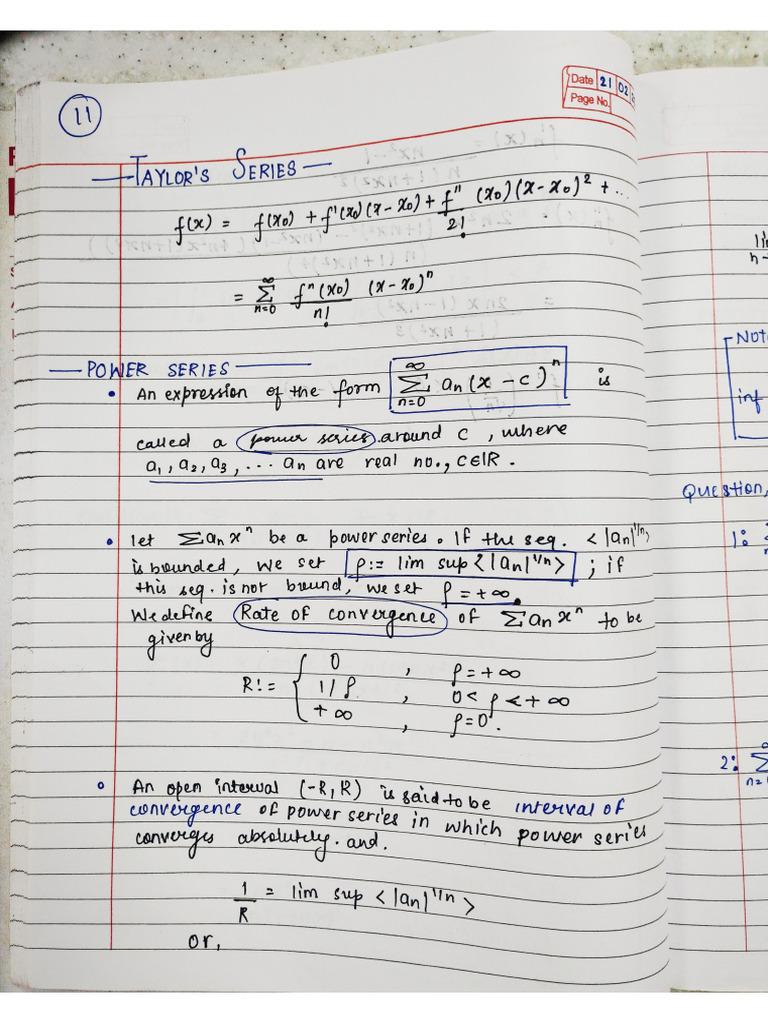 11
Date 21 02
Page No.
TAYLOR'S SERIES
f(x) = f(x₀) + f'(x₀)(x-x₀) + f''(x₀)(x-x₀)²/2! + ...
= Σ_{n=0}^{∞} fⁿ(x₀)/n! (x-x₀)ⁿ
POWER SERIES
• An expression of the form Σ_{n=0}^{∞} aₙ(x-c)ⁿ is
called a power series around c, where
a₁, a₂, a₃, ... aₙ are real no., c∈ℝ.
• let Σaₙxⁿ be a power series. If the seq. <|aₙ|^{1/n}>
is bounded, we set ρ:= lim sup <|aₙ|^{1/n}> ; if
this seq. is not bound, we set ρ=+∞.
We define Rate of convergence of Σaₙxⁿ to be
given by
R!= { 0 , ρ=+∞
1/ρ , 0<ρ<+∞
+∞ , ρ=0.
• An open interval (-R,R) is said to be interval of
convergence of power series in which power series
converges absolutely. and.
1/R = lim sup <|aₙ|^{1/n}>
or,
inf
Question,
1:
2: Σ